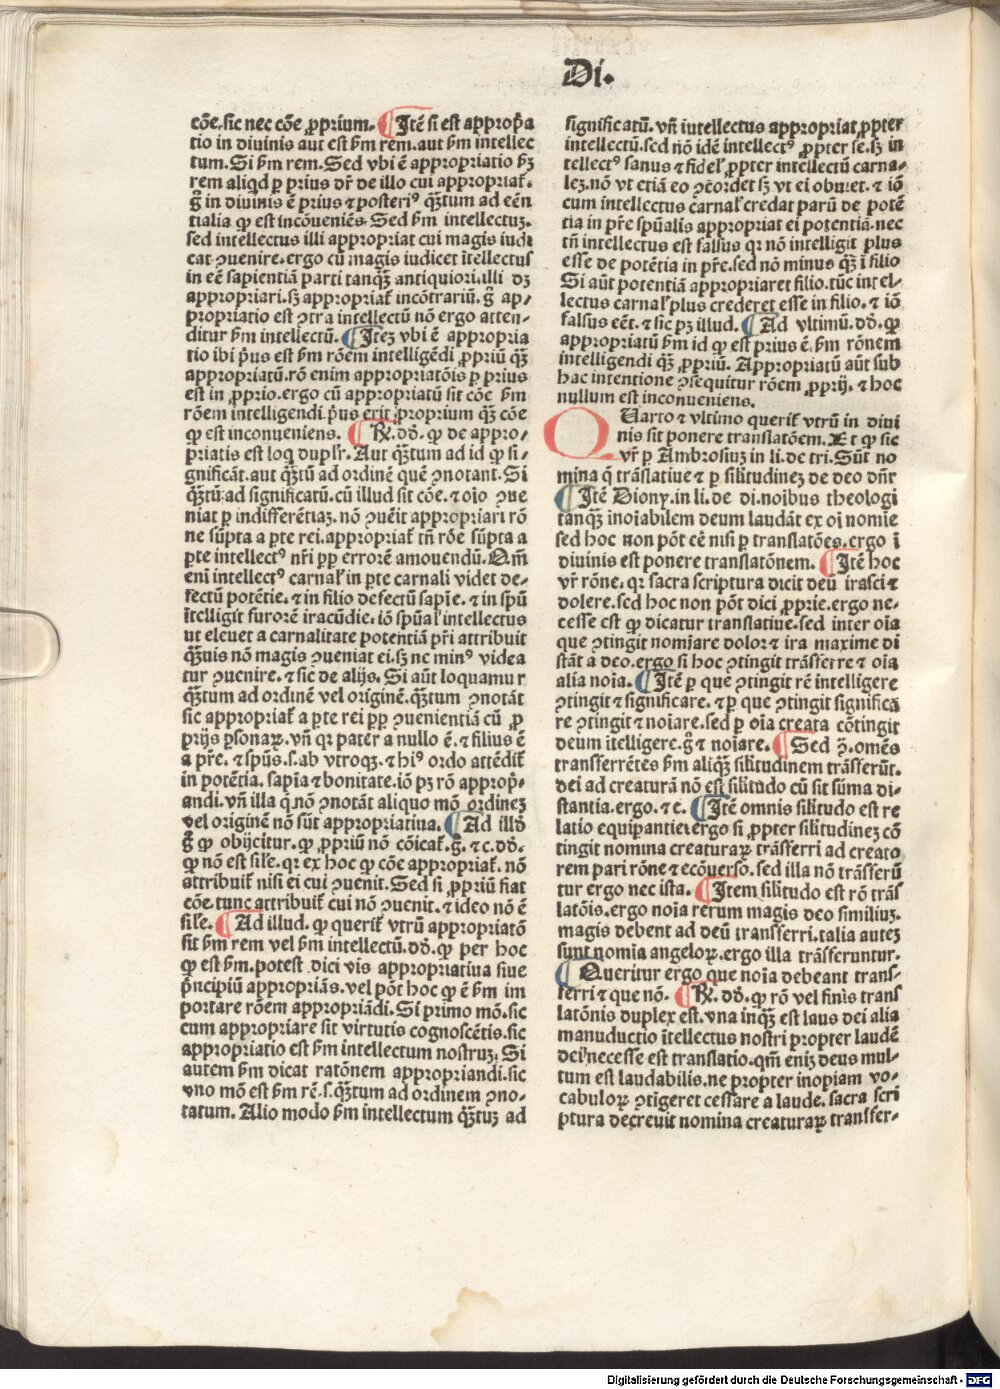 Di.
cōe.sic nec cōe ꝓprium. ¶ Itē si est approp̄a
tio in diuinis aut est ẜm rem.aut ẜm intellec
tum.Si ẜm rem.Sed vbi ē appropriatio ẜꝫ
rem aliqd ꝑ prius dr̄ de illo cui appropriat̄.
ḡ in diuinis ē prius ⁊ posteriꝰ q̄ꝫtum ad eēn
tialia ꝙ est incōueniēs.Sed ẜm intellectuꝫ.
sed intellectus illi appropriat cui magis iudi
cat ꝯuenire.ergo cū magis iudicet ītellectus
in eē sapientiā parti tanq̄ꝫ antiquiori.illi dꝫ
appropriari.sꝫ appropriat̄ incōtrariū.ḡ ap⸗
propriatio est ꝯtra intellectū nō ergo atten⸗
ditur ẜm intellectū. ¶ Iteꝫ vbi ē appropria
tio ibi p̄us est ẜm rōem intelligēdi ꝓpriū q̄ꝫ
appropriatū.rō enim appropriatōis ꝑ prius
est in ꝓprio.ergo cū appropriatū sit cōe ẜm
rōem intelligendi p̄us erit ꝓproprium q̄ꝫ cōe
ꝙ est inconueniens. ¶ R̄. dd̄. ꝙ de appro⸗
priatis est loq̄ duplr̄. Aut q̄ꝫtum ad id ꝙ si⸗
gnificāt.aut q̄ꝫtū ad ordinē quē ꝯnotant. Si
q̄ꝫtū ad significatū.cū illud sit cōe.⁊ oīo ꝯue
niat ꝑ indifferētiaꝫ.nō ꝯuēit appropriari rō
ne sūpta a ꝑte rei.appropriat̄ tn̄ rōe sūpta a
ꝑte intellectꝰ nr̄i ꝓp errorē amouendū.Qm̄
eni intellectꝰ carnal̄ in ꝑte carnali videt de⸗
fectū potētie.⁊ in filio defectū sapīe.⁊ in spū
ītelligit furorē iracūdie.iō spūal̄ intellectus
ut eleuet a carnalitate potentiā pr̄i attribuit
q̄ꝫuis nō magis ꝯueniat ei.sꝫ nc minꝰ videa
tur ꝯuenire.⁊ sic de alijs. Si aūt loquamur
q̄ꝫtum ad ordinē vel originē.q̄ꝫtum ꝯnotāt
sic appropriat̄ a ꝑte rei ꝓp ꝯuenientiā cū ꝓ
prijs ꝑsonaꝝ.vn̄ qꝛ pater a nullo ē.⁊ filius ē
a pr̄e.⁊ spūs.s.ab vtroqꝫ.⁊ hiꝰ ordo attēdit̄
in potētia. sapīa ⁊ bonitate.iō pꝫ rō approp̄⸗
andi.vn̄ illa q̄ nō ꝯnotāt aliquo mō ordineꝫ
vel originē nō sūt appropriatiua. ¶ Ad illd̄
ḡ ꝙ obijcitur.ꝙ ꝓpriū nō cōicat̄.ḡ.⁊ c.dd̄.
ꝙ nō est sil̄e.qꝛ ex hoc ꝙ cōe appropriat̄.nō
attribuit̄ nisi ei cui ꝯuenit.Sed si ꝓpriū fiat
cōe.tunc attribuit̄ cui nō ꝯuenit.⁊ ideo nō ē
sil̄e. ¶ Ad illud.ꝙ querit̄ vtrū appropriatō
sit ẜm rem vel ẜm intellectū.dd̄.ꝙ per hoc
ꝙ est ẜm.potest dici vis appropriatiua siue
p̄ncipiū appropriās.vel pōt hoc ꝙ ē ẜm im
portare rōem appropriādi.Si primo mō.sic
cum appropriare sit virtutis cognoscētis.sic
appropriatio est ẜm intellectum nostruꝫ.Si
autem ẜm dicat ratōnem appropriandi.sic
vno mō est ẜm rē.s.q̄ꝫtum ad ordinem ꝯno⸗
tatum. Alio modo ẜm intellectum q̄ꝫtuꝫ ad
significatū.vn̄ iutellectus appropriat ꝓpter
intellectū.sed nō idē intellectꝰ ꝓpter se.sꝫ in
tellectꝰ sanus ⁊ fidel̄ ꝓpter intellectū carna⸗
leꝫ.nō vt etiā eo ꝯcordet sꝫ vt ei obuiet.⁊ iō
cum intellectus carnal̄ credat parū de potē
tia in pr̄e spūalis appropriat ei potentiā.nec
tn̄ intellectus est falsus qꝛ nō intelligit plus
esse de potētia in pr̄e.sed nō minus q̄ꝫ ī filio
Si aūt potentiā appropriaret filio.tūc intel⸗
lectus carnal̄ plus crederet esse in filio.⁊ iō
falsus eēt.⁊ sic pꝫ illud. ¶ Ad vltimū.dd̄.ꝙ
appropriatū ẜm id ꝙ est prius ē.ẜm rōnem
intelligendi q̄ꝫ ꝓpriū. Appropriatū aūt sub
hac intentione ꝯsequitur rōem ꝓprij.⁊ hoc
nullum est inconueniens.
QUarto ⁊ vltimo querit̄ vtrū in diui
nis sit ponere translatōem.Et ꝙ sic
vr̄ ꝑ Ambrosiuꝫ in li.de tri.Sūt no
mina q̄ trāslatiue ⁊ ꝑ silitudineꝫ de deo dn̄r
¶ Itē Diony.in li.de di.noībus theologi
tanq̄ꝫ inoīabilem deum laudāt ex oī nomīe
sed hoc non pōt eē nisi ꝑ translatōes.ergo ī
diuinis est ponere translatōnem. ¶ Itē hoc
vr̄ rōne.qꝛ sacra scriptura dicit deū irasci ⁊
dolere.sed hoc non pōt dici ꝓprie.ergo ne⸗
cesse est ꝙ dicatur translatiue.sed inter oīa
que ꝯtingit nomīare dolor ⁊ ira maxime di
stāt a deo.ergo si hoc ꝯtingit trāsferre ⁊ oīa
alia noīa. ¶ Itē ꝑ que ꝯtingit rē intelligere
ꝯtingit ⁊ significare.⁊ ꝑ que ꝯtingit significa
re ꝯtingit ⁊ noīare.sed ꝑ oīa creata cōtingit
deum ītelligere.ḡ ⁊ noīare. ¶ Sed ꝯ̄.omēs
transferrētes ẜm aliq̄ꝫ silitudinem trāsferūt.
dei ad creaturā nō est silitudo cū sit sūma di⸗
stantia.ergo.⁊ c. ¶ Itē omnis silitudo est re
latio equiparantie.ergo si ꝓpter silitudineꝫ cō
tingit nomina creaturaꝝ trāsferri ad creato
rem pari rōne ⁊ ecōuerso.sed illa nō trāsferū
tur ergo nec ista. ¶ Item silitudo est rō trās
latōis.ergo noīa rerum magis deo similiuꝫ.
magis debent ad deū transferri.talia auteꝫ
sunt nomīa angeloꝝ.ergo illa trāsferuntur.
¶ Queritur ergo que noīa debeant trans⸗
ferri ⁊ que nō. ¶ R̄. dd̄.ꝙ rō vel finis trans
latōnis duplex est.vna inq̄ꝫ est laus dei alia
manuductio ītellectus nostri propter laudē
dei necesse est translatio.qm̄ eniꝫ deus mul⸗
tum est laudabilis.ne propter inopiam vo⸗
cabuloꝝ ꝯtigeret cessare a laude. sacra scri
ptura decreuit nomina creaturaꝝ transfer⸗
Digitalisierung gefördert durch die Deutsche Forschungsgemeinschaft - DFG